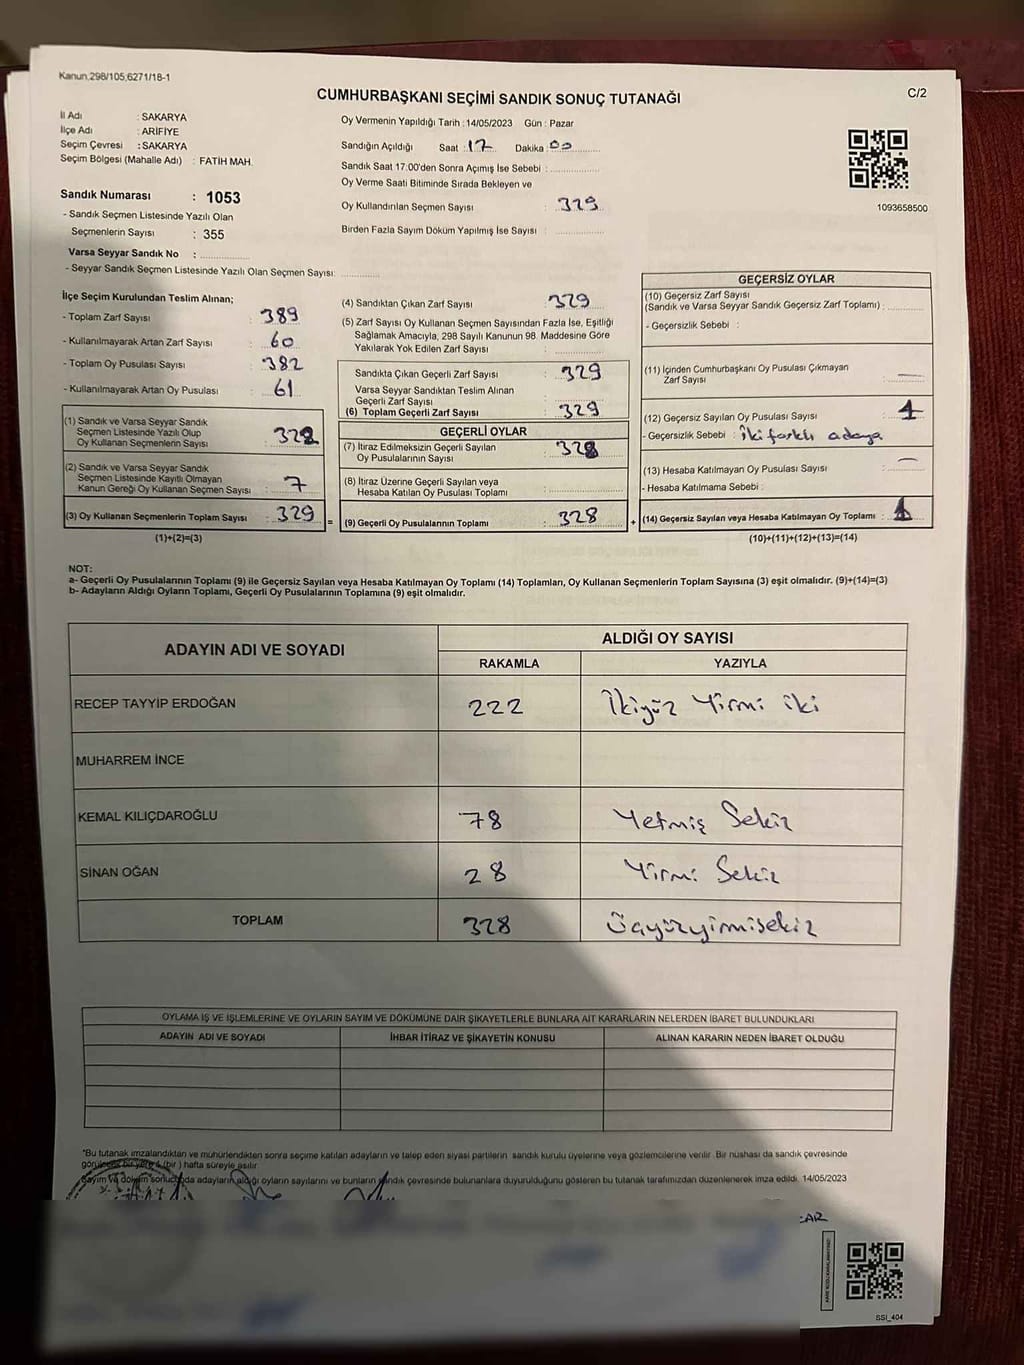 Kanun,298/105,6271/18-1
C/2
CUMHURBAŞKANI SEÇİMİ SANDIK SONUÇ TUTANAĞI
İl Adı : SAKARYA
İlçe Adı : ARİFİYE
Seçim Çevresi : SAKARYA
Seçim Bölgesi (Mahalle Adı) : FATİH MAH.
Sandık Numarası : 1053
- Sandık Seçmen Listesinde Yazılı Olan
Seçmenlerin Sayısı : 355
Varsa Seyyar Sandık No :
- Seyyar Sandık Seçmen Listesinde Yazılı Olan Seçmen Sayısı:
Oy Vermenin Yapıldığı Tarih : 14/05/2023 Gün : Pazar
Sandığın Açıldığı Saat : 17 Dakika : 00
Sandık Saat 17:00'den Sonra Açımış İse Sebebi :
Oy Verme Saati Bitiminde Sırada Bekleyen ve
Oy Kullandırılan Seçmen Sayısı : 329
Birden Fazla Sayım Döküm Yapılmış İse Sayısı :
1093658500
İlçe Seçim Kurulundan Teslim Alınan;
- Toplam Zarf Sayısı : 389
- Kullanılmayarak Artan Zarf Sayısı : 60
- Toplam Oy Pusulası Sayısı : 382
- Kullanılmayarak Artan Oy Pusulası : 61
(1) Sandık ve Varsa Seyyar Sandık
Seçmen Listesinde Yazılı Olup
Oy Kullanan Seçmenlerin Sayısı :
(2) Sandık ve Varsa Seyyar Sandık
Seçmen Listesinde Kayıtlı Olmayan
Kanun Gereği Oy Kullanan Seçmen Sayısı : 7
(3) Oy Kullanan Seçmenlerin Toplam Sayısı : 329
(1)+(2)=(3)
(4) Sandıktan Çıkan Zarf Sayısı : 329
(5) Zarf Sayısı Oy Kullanan Seçmen Sayısından Fazla İse, Eşitliği
Sağlamak Amacıyla, 298 Sayılı Kanunun 98. Maddesine Göre
Yakılarak Yok Edilen Zarf Sayısı :
Sandıkta Çıkan Geçerli Zarf Sayısı : 329
Varsa Seyyar Sandıktan Teslim Alınan
Geçerli Zarf Sayısı :
(6) Toplam Geçerli Zarf Sayısı : 329
GEÇERLİ OYLAR
(7) İtiraz Edilmeksizin Geçerli Sayılan
Oy Pusulalarının Sayısı : 328
(8) İtiraz Üzerine Geçerli Sayılan veya
Hesaba Katılan Oy Pusulası Toplamı :
= (9) Geçerli Oy Pusulalarının Toplamı : 328
GEÇERSİZ OYLAR
(10) Geçersiz Zarf Sayısı
(Sandık ve Varsa Seyyar Sandık Geçersiz Zarf Toplamı) :
- Geçersizlik Sebebi :
(11) İçinden Cumhurbaşkanı Oy Pusulası Çıkmayan
Zarf Sayısı : —
(12) Geçersiz Sayılan Oy Pusulası Sayısı : 1
- Geçersizlik Sebebi : İki farklı adaya
(13) Hesaba Katılmayan Oy Pusulası Sayısı : —
- Hesaba Katılmama Sebebi :
+ (14) Geçersiz Sayılan veya Hesaba Katılmayan Oy Toplamı : 1
(10)+(11)+(12)+(13)=(14)
NOT:
a- Geçerli Oy Pusulalarının Toplamı (9) ile Geçersiz Sayılan veya Hesaba Katılmayan Oy Toplamı (14) Toplamları, Oy Kullanan Seçmenlerin Toplam Sayısına (3) eşit olmalıdır. (9)+(14)=(3)
b- Adayların Aldığı Oyların Toplamı, Geçerli Oy Pusulalarının Toplamına (9) eşit olmalıdır.
ADAYIN ADI VE SOYADI
ALDIĞI OY SAYISI
RAKAMLA YAZIYLA
RECEP TAYYİP ERDOĞAN 222 İkiyüz Yirmi iki
MUHARREM İNCE
KEMAL KILIÇDAROĞLU 78 Yetmiş Sekiz
SİNAN OĞAN 28 Yirmi Sekiz
TOPLAM 328 Üçyüzyirmisekiz
OYLAMA İŞ VE İŞLEMLERİNE VE OYLARIN SAYIM VE DÖKÜMÜNE DAİR ŞİKAYETLERLE BUNLARA AİT KARARLARIN NELERDEN İBARET BULUNDUKLARI
ADAYIN ADI VE SOYADI İHBAR İTİRAZ VE ŞİKAYETİN KONUSU ALINAN KARARIN NEDEN İBARET OLDUĞU
"Bu tutanak imzalandıktan ve mühürlendikten sonra seçime katılan adayların ve talep eden siyasi partilerin sandık kurulu üyelerine veya gözlemcilerine verilir. Bir nüshası da sandık çevresinde
görülecek bir yere 1 (bir) hafta süreyle asılır.
Sayım ve döküm sonucunda adayların aldığı oyların sayılarını ve bunların sandık çevresinde bulunanlara duyurulduğunu gösteren bu tutanak tarafımızdan düzenlenerek imza edildi. 14/05/2023
SSI_404